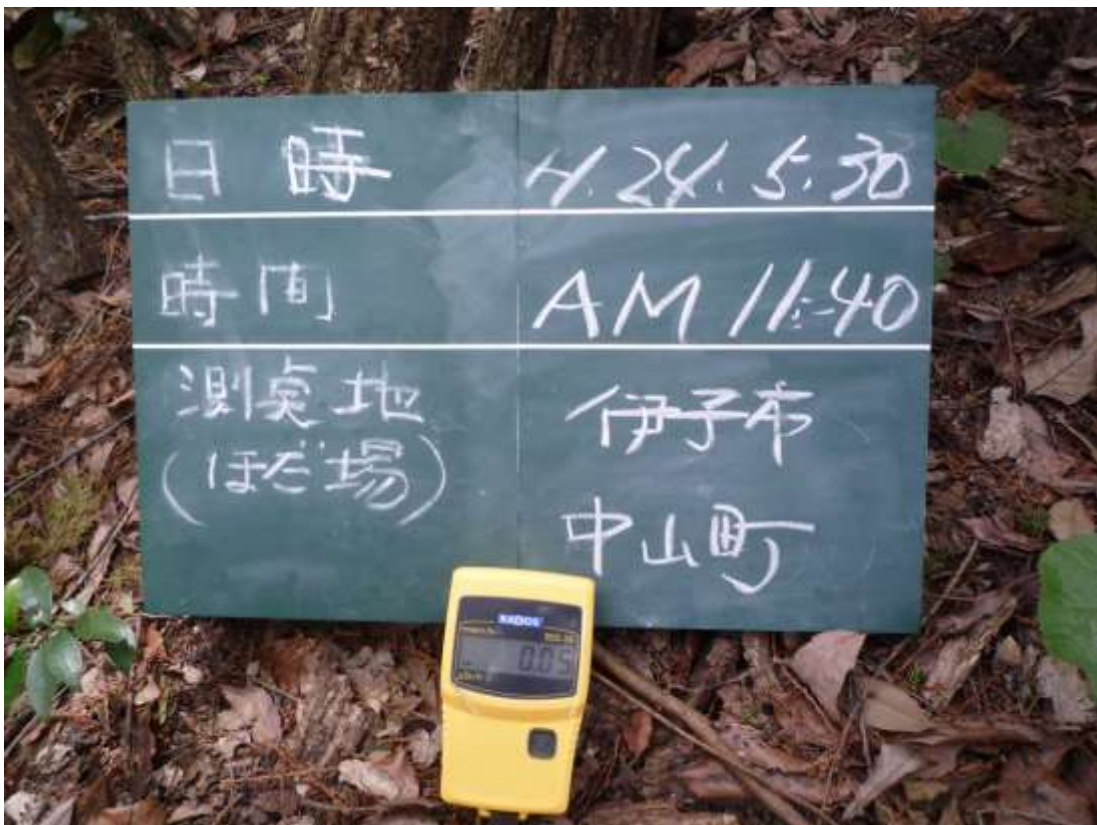 日時 H.24.5.30
時間 AM 11:40
測点地
(ほだ場)
伊予市
中山町
RADOS
0.05